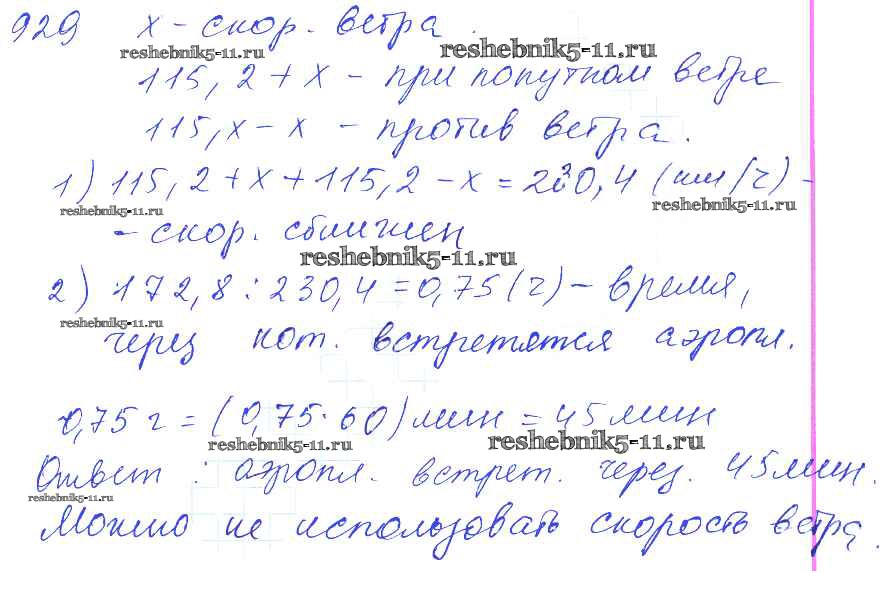 929 x - скор. ветра
reshebnik5-11.ru reshebnik5-11.ru
115,2 + x - при попутном ветре
115,x - x - против ветра.
1) 115,2 + x + 115,2 - x = 230,4 (км/ч) -
reshebnik5-11.ru reshebnik5-11.ru
- скор. сближен
reshebnik5-11.ru
2) 172,8 : 230,4 = 0,75 (ч) - время,
reshebnik5-11.ru
через кот. встретятся аэропл.
0,75 ч = (0,75 · 60) мин = 45 мин
reshebnik5-11.ru reshebnik5-11.ru
Ответ : аэропл. встрет. через. 45 мин.
reshebnik5-11.ru
Можно не использовать скорость ветра.